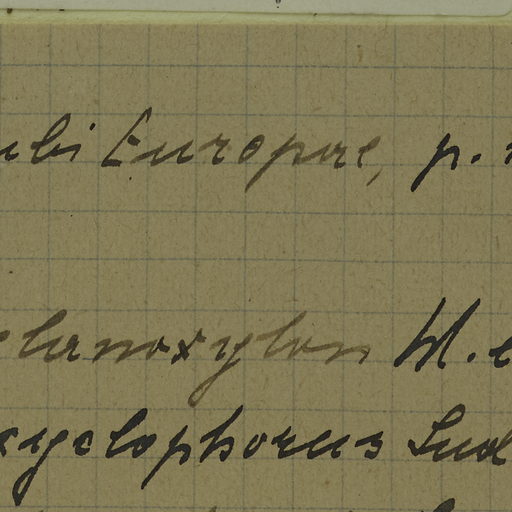 ubi Europae, p.
elanoxylon M. e
cyclophorus Sud